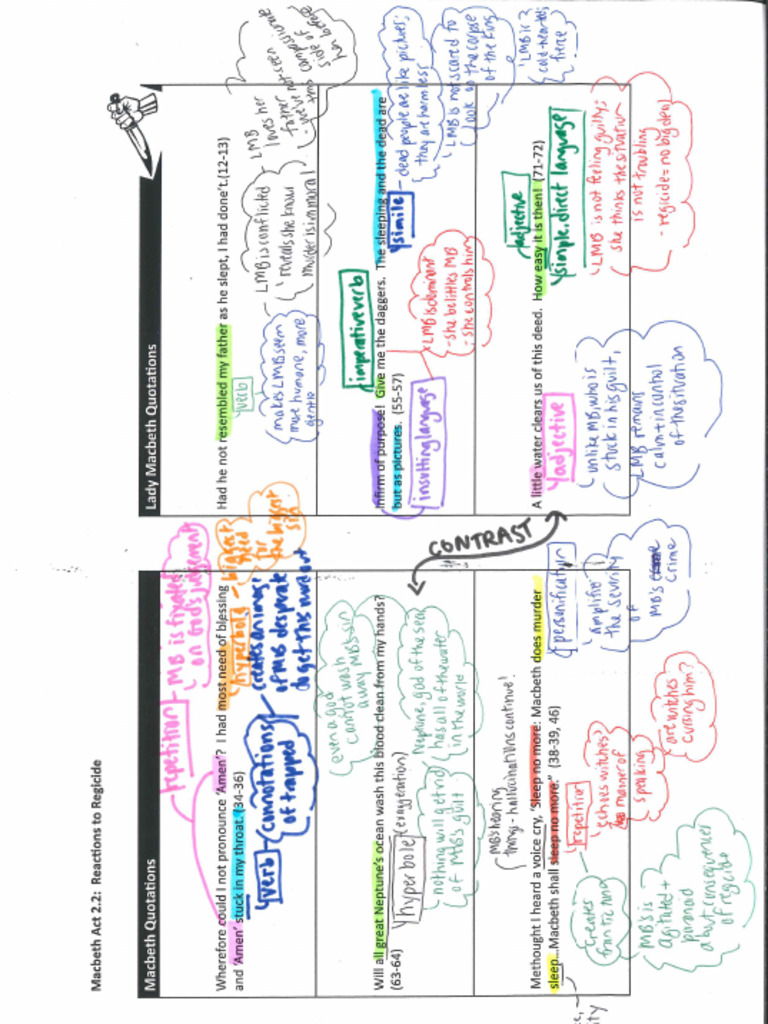 Macbeth Act 2.2: Reactions to Regicide
Macbeth Quotations
Wherefore could I not pronounce 'Amen'? I had most need of blessing
and 'Amen' stuck in my throat. (34-36)
repetition - MB is fixated
on God's judgement
hyperbole - biggest
need
for
the biggest
sin
verb - connotations
of trapped
creates an image
of MB desperate
to get this word out
Will all great Neptune's ocean wash this blood clean from my hands?
(63-64)
hyperbole (exaggeration)
even a god
cannot wash
away MB's sin
Neptune, god of the sea,
has all of the water
in the world
nothing will get rid
of MB's guilt
Methought I heard a voice cry, 'Sleep no more: Macbeth does murder
sleep...Macbeth shall sleep no more." (38-39, 46)
MB's hearing
things - hallucinations continue!
personification
amplifies
the severity
of
MB's crime
repetitive
echoes witches'
manner of
speaking
are witches
cursing him?
creates
frantic
MB's is
agitated +
paranoid
about consequences
of regicide
CONTRAST
Lady Macbeth Quotations
Had he not resembled my father as he slept, I had done't.(12-13)
verb
makes LMB seem
more humane, more
gentle
LMB is conflicted
reveals she knows
murder is immoral
LMB
loves her
father
- we've not seen
this compassionate
side of
her before
Infirm of purpose! Give me the daggers. The sleeping and the dead are
but as pictures. (55-57)
imperative verb
simile
insulting language
LMB is dominant
- she belittles MB
- she controls him
dead people are like pictures;
they are harmless
LMB is not scared to
look at the corpse
of the King
LMB is
cold-hearted,
fierce
A little water clears us of this deed. How easy it is then! (71-72)
adjective
adjective
simple, direct language
unlike MB who is
stuck in his guilt,
LMB remains
calm + in control
of the situation
LMB is not feeling guilty;
she thinks the situation
is not troubling
- regicide = no big deal